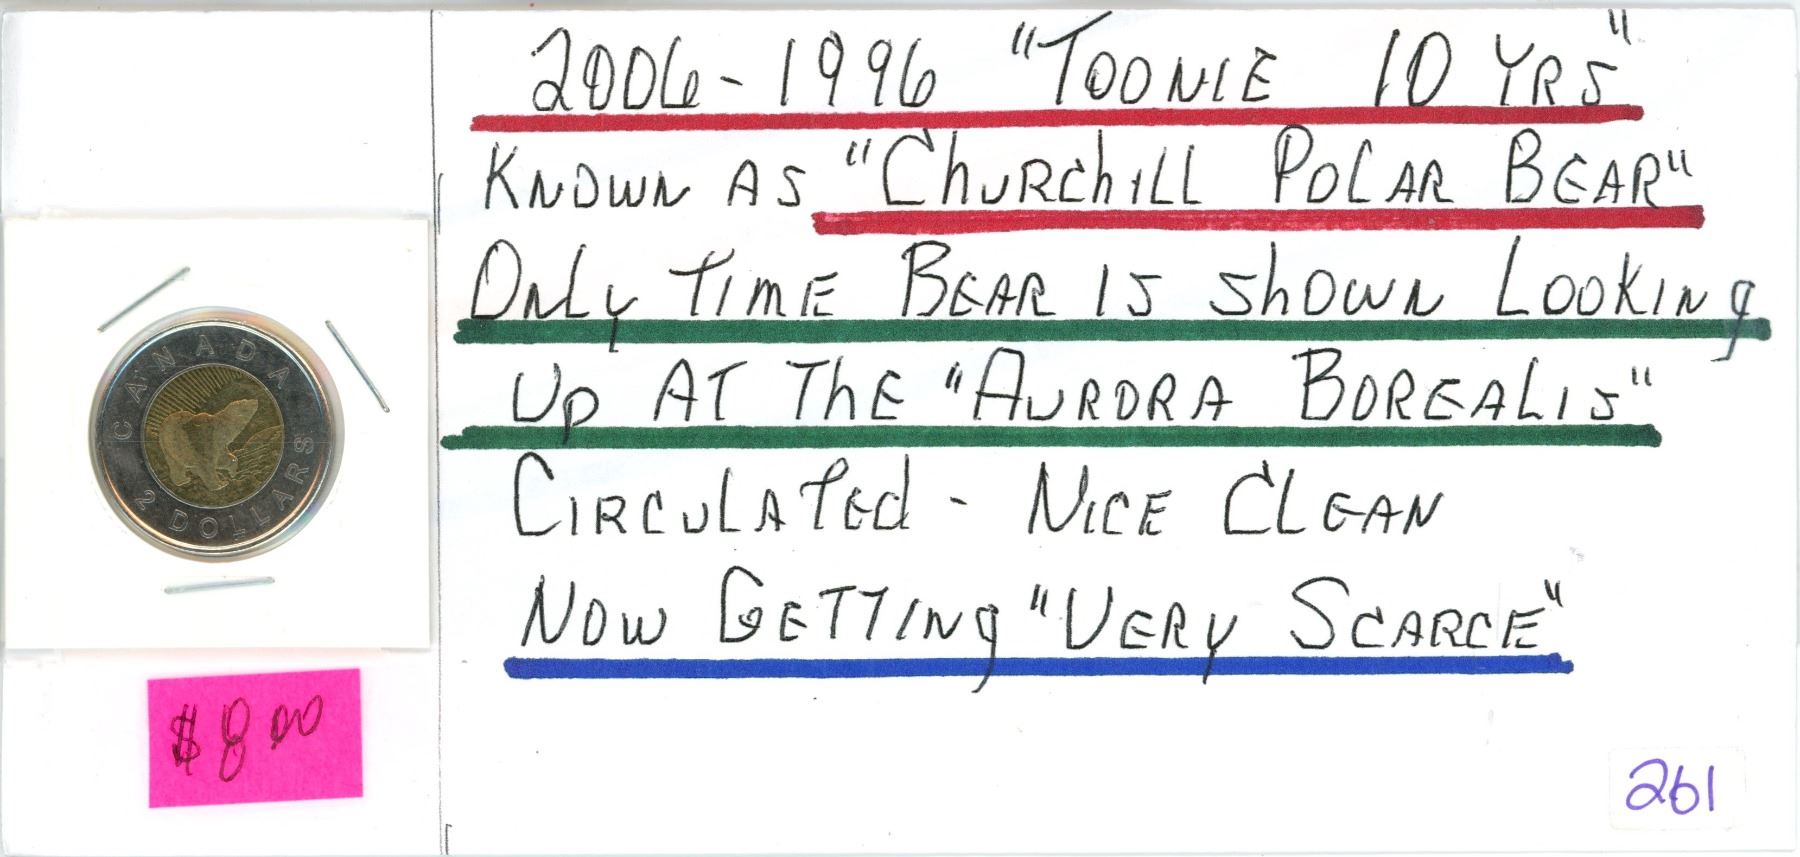 2006-1996 "TOONIE 10 YRS"
KNOWN AS "CHURCHILL POLAR BEAR"
ONLY TIME BEAR IS SHOWN LOOKING
UP AT THE "AURORA BOREALIS"
CIRCULATED - NICE CLEAN
NOW GETTING "VERY SCARCE"
CANADA
2 DOLLARS
$8.00
261